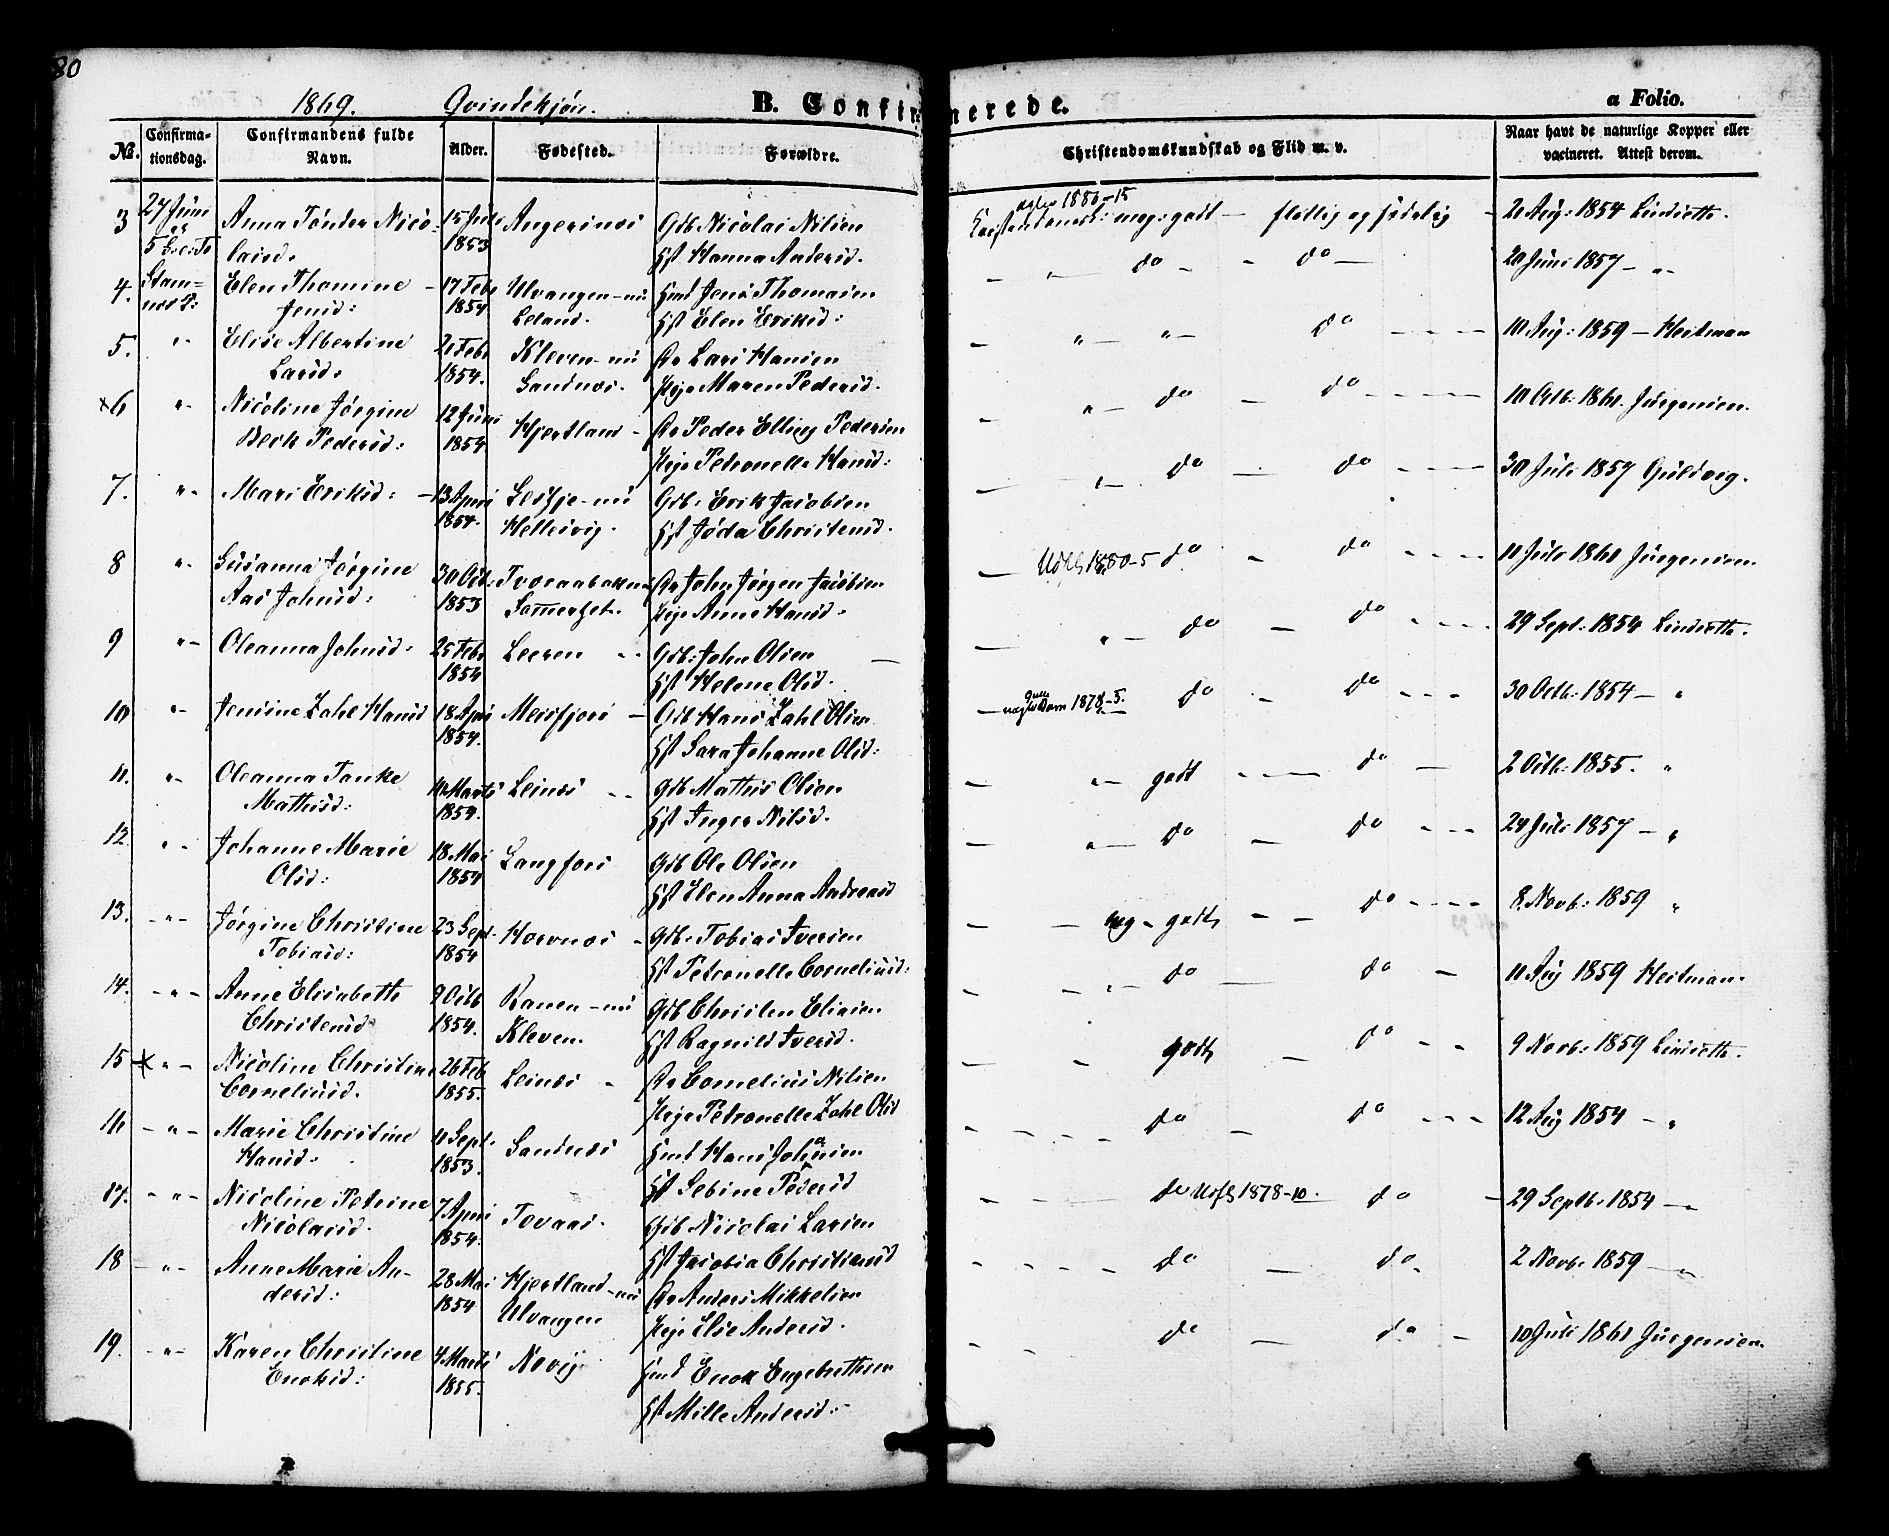 80
1869. Qvindekjøn. B. Confirmerede. a Folio.
No. Confirma-tionsdag. Confirmandens fulde Navn. Alder. Fødested. Forældre. Christendomskundskab og Flid m. v. Naar havt de naturlige Kopper eller vacineret. Attest derom.
3 27 Juni Anna Tønder Nico- 15 Juli Angerinæs Gdb Nicolai Nilsen 1880-15 meg: godt - flittig og sædelig - 2 Aug: 1854
5 laisd. 1853 Hst Hanna Andersd.
4. Stamnæs Elen Thomine - 17 Febr Ulvangen - nu Hmd Jens Thomasen " do - do - 20 Juni 1857 - "
Jensd: 1854 Leland. Hst Elen Eriksd:
5. " Elise Albertine 2 Febr Kleven - nu Lars Hansen " " do 10 Aug: 1859 - Heitman
Larsd. 1854. Sandnæs. Maren Pedersd.
×6 " Nicoline Jørgine 12 Juni Hjertland - Peder Elling Pedersen " do - do 10 Octb: 1861. Jürgensen.
Beck Pedersd: 1854 Petronelle Hansd:
7. " Mari Eriksd: - 13 April - nu Gdb: Erik Jacobsen " do - do 30 Juli 1857 Guldvog.
1854. Hellesvig. Hst Jøda Christensd.
8 " Susanna Jørgine 30 Oct: John Jørgen Jacobsen 1880-5 do - do 11 Juli 1861 Jürgensen
Aas Johnsd: 1853 Anne Hansd.
9 " Oleanna Johnsd. 25 Febr Leeren " Gdb: John Olsen " do - do 29 Sept: 1854
1854 Hst Helene Olsd.
10 " Jensine Zahl Hansd 18 April Meisfjord - Gdb Hans Zahl Olsen 1878-5. do - do 30 Octb: 1854 - "
1854. Hst Sara Johanne Olsd:
11. " Oleanna Tanke Marts Leinæs " Gdb Mathis Olsen " godt do 2 Octb: 1855. "
Mathisd: 1854. Hst Inger Nilsd.
12. " Johanne Marie 18 Mai Langfors Gdb Ole Olsen " do - do 24 Juli 1857 - "
Olsd: 1854 Hst Elen Anna Andreasd
13. " Jørgine Christine 23 Sept. Hornæs " Gdb: Tobias Iversen meg - godt - - do 8. Novb: 1859 "
Tobiasd: 1854 Hst Petronelle Corneliusd:
14. " Anne Elisabeth 9 Octb Ranen - nu Gdb Christen Eliasen " do - do - 11 Aug 1859 Heitman.
Christensd 1854. Kleven. Hst Ragnild Iversd.
15 × " Nicoline Christine 26 Feb Leinæs " Cornelius Nilsen godt - do 9 Novb: 1859
Corneliusd. 1855. Petronelle Zahl Olsd
16 - " - Marie Christine 11 Sept. Sandnæs Hmd Hans Johansen do - do 12 Aug 1854 - "
Hansd. 1853. Hst Sebine Pedersd
17. - " - Nicoline Petrine 7 April Tovaas. Gdb Nicolai Larsen do 1878-10. do 29 Septb: 1854 - "
Nicolaisd. 1854. Hst Jacobia Christiansd
18 - " - Anne Marie An- 28 Mai Hjertland - nu Anders Mikkelsen do - do. 2 Novb. 1859 - "
dersd: 1854 Ulvangen Else Andersd.
19. - " - Karen Christine 4 Marts Nevij Hmd Enok Engebrethsen do - do - 10 Juli 1861 Jürgensen.
Enoksd: 1855. Hst Mille Andersd.